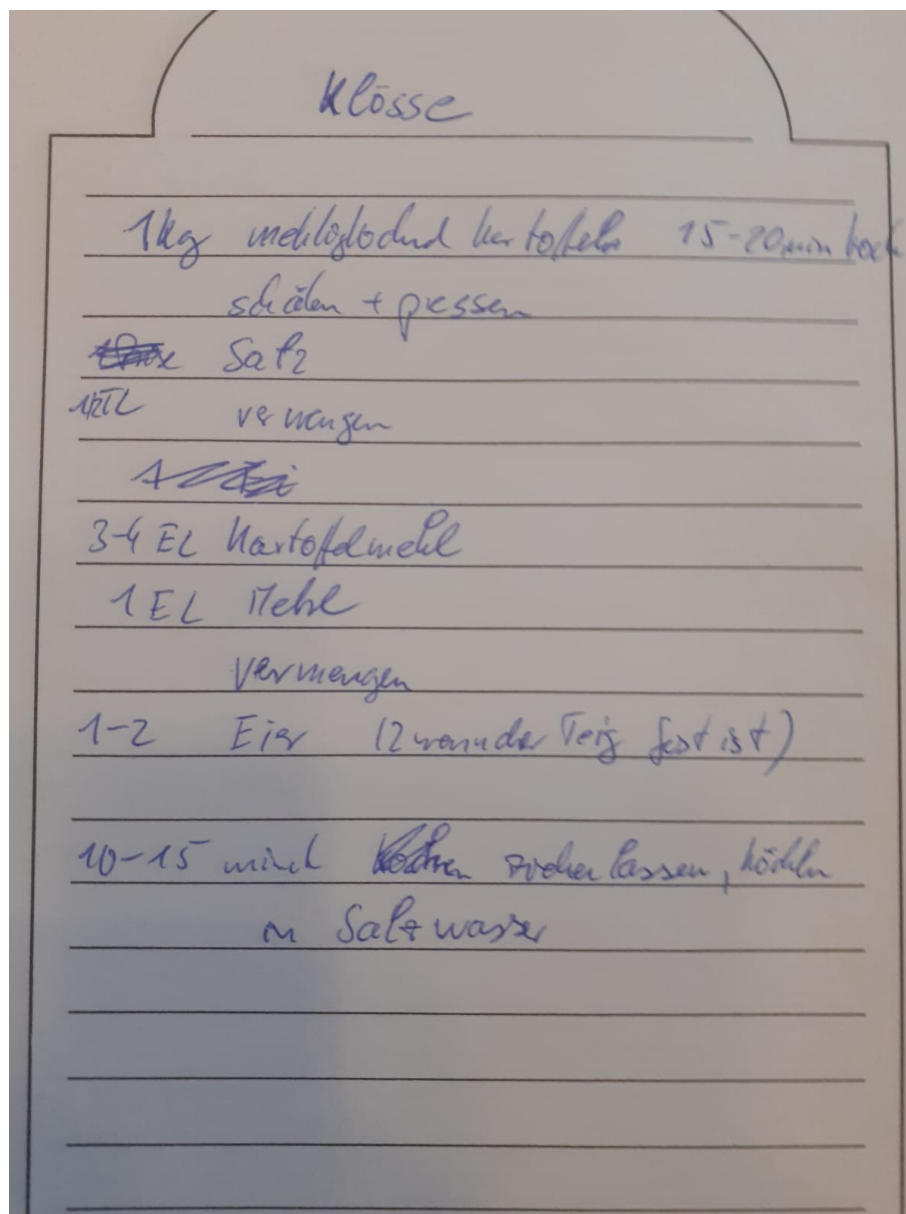 Klösse
1kg mehligkochend Kartoffeln 15-20min koch
schälen + pressen
Salz
1/2TL vermengen
3-4 EL Kartoffelmehl
1 EL Mehl
vermengen
1-2 Eier (2 wenn der Teig fest ist)
10-15 min ziehen lassen, köcheln
in Salzwasser